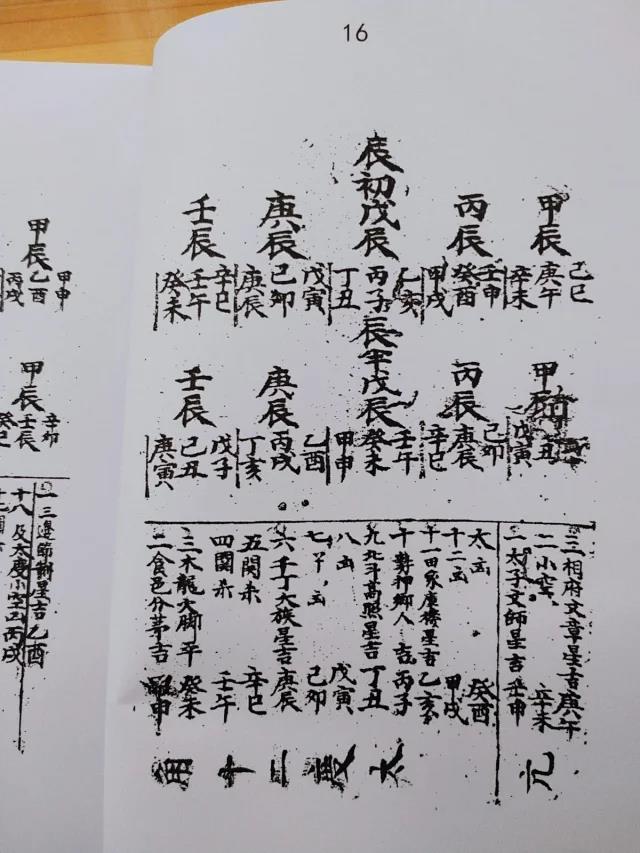 16
辰初戊辰
甲辰
己巳
庚午
辛未
丙辰
壬申
癸酉
甲戌
乙亥
丙子
丁丑
庚辰
戊寅
己卯
庚辰
壬辰
辛巳
壬午
癸未
辰年戊辰
丑
戊寅
丙辰
己卯
庚辰
辛巳
壬午
癸未
甲申
庚辰
乙酉
丙戌
丁亥
壬辰
戊子
己丑
庚寅
三相府文章星吉庚午
二小空辛未
一太子文師星吉壬申
元
太凶癸酉
十二凶甲戌
十一田家庫樓星吉乙亥
十勢神鄉人吉丙子
九北斗高照星吉丁丑
八凶戊寅
七丫凶己卯
六千丁大族星吉庚辰
五関杀辛巳
四園杀壬午
三木龍大脚平癸未
二食邑分茅吉申
太度二十
甲辰
甲申
乙酉
丙戌
甲辰
辛卯
壬辰
癸巳
三邊節鄉星吉乙酉
十八及太度小空丙戌